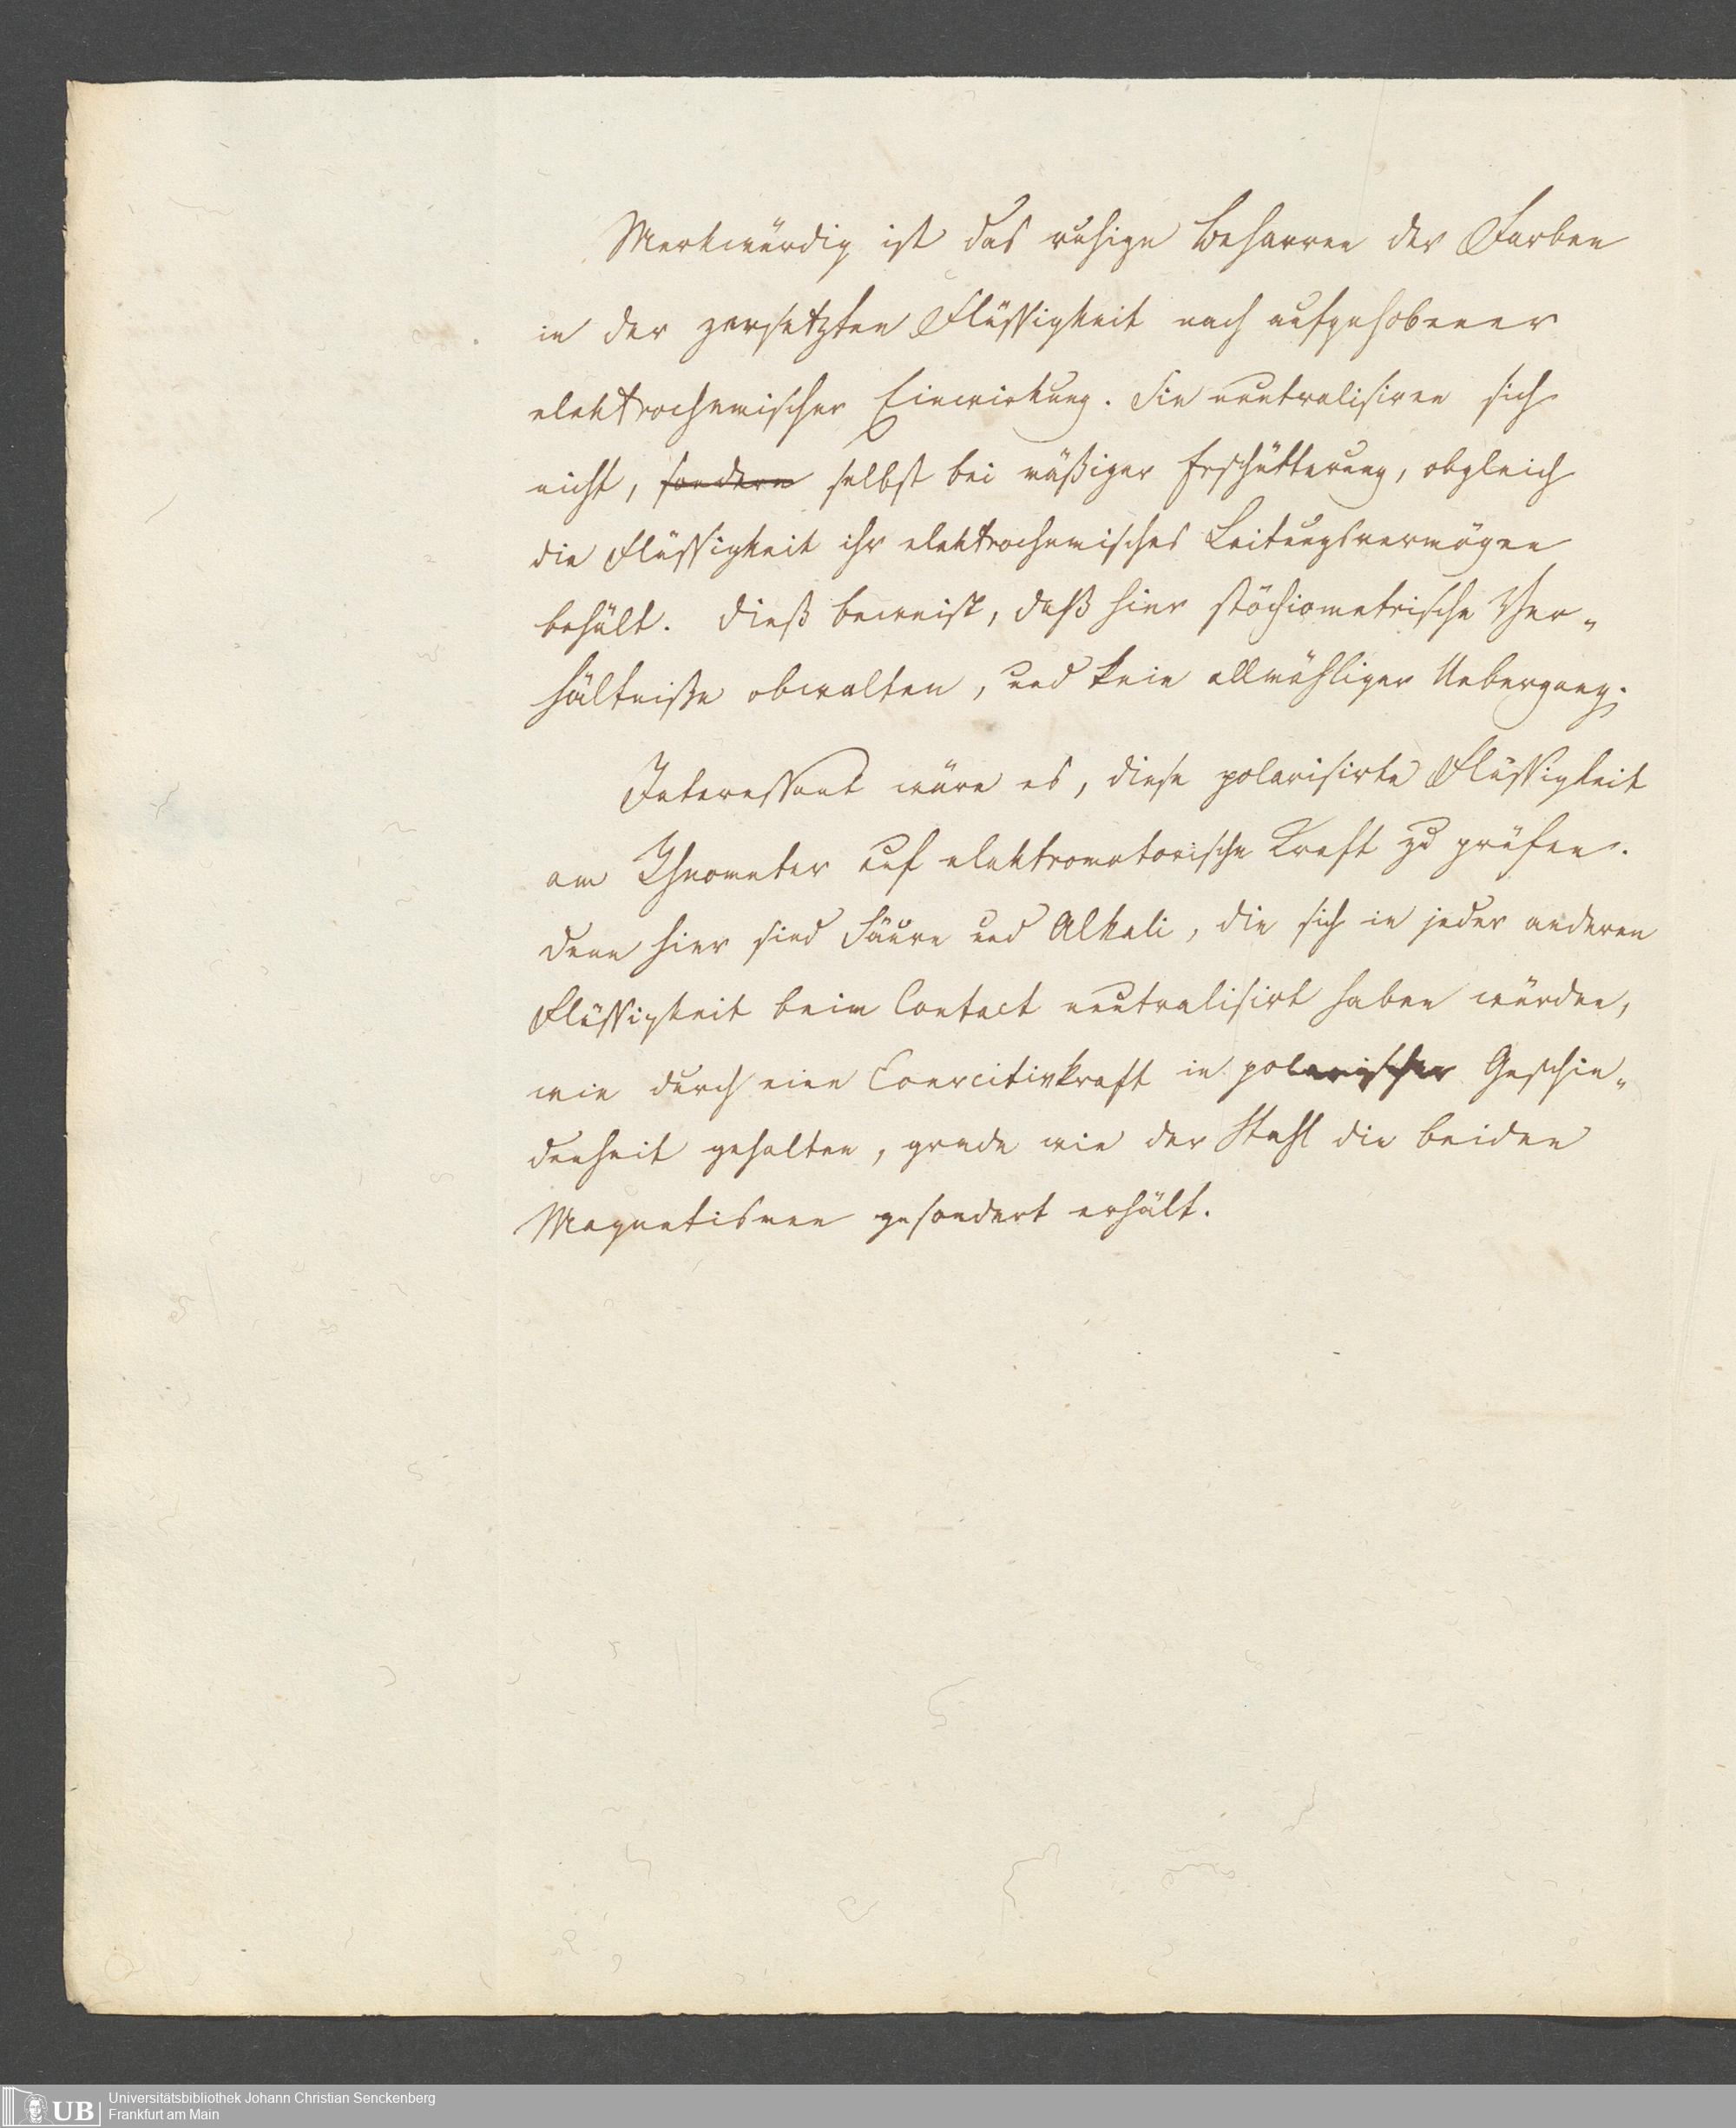 Merkwürdig ist das ruhige Beharren der Farben
in der zersetzten Flüssigkeit nach aufgehobener
elektrochemischer Einwirkung. Sie neutralisiren sich
nicht, sondern selbst bei mäßiger Erschütterung, obgleich
die Flüssigkeit ihr elektrochemisches Leitungsvermögen
behält. Dieß beweist, daß hier stöchiometrische Ver„
hältniße obwalten, und kein allmähliger Uebergang.
Interessant wäre es, diese polarisirte Flüssigkeit
am Rheometer auf elektromotorische Kraft zu prüfen.
denn hier sind Säure und Alkali, die sich in jeder anderen
Flüssigkeit beim Contact neutralisirt haben würden,
wie durch eine Coercitivkraft in polarischer Geschie„
denheit gehalten, grade wie der Stahl die beiden
Magnetismen gesondert erhält.
UB
Universitätsbibliothek Johann Christian Senckenberg
Frankfurt am Main